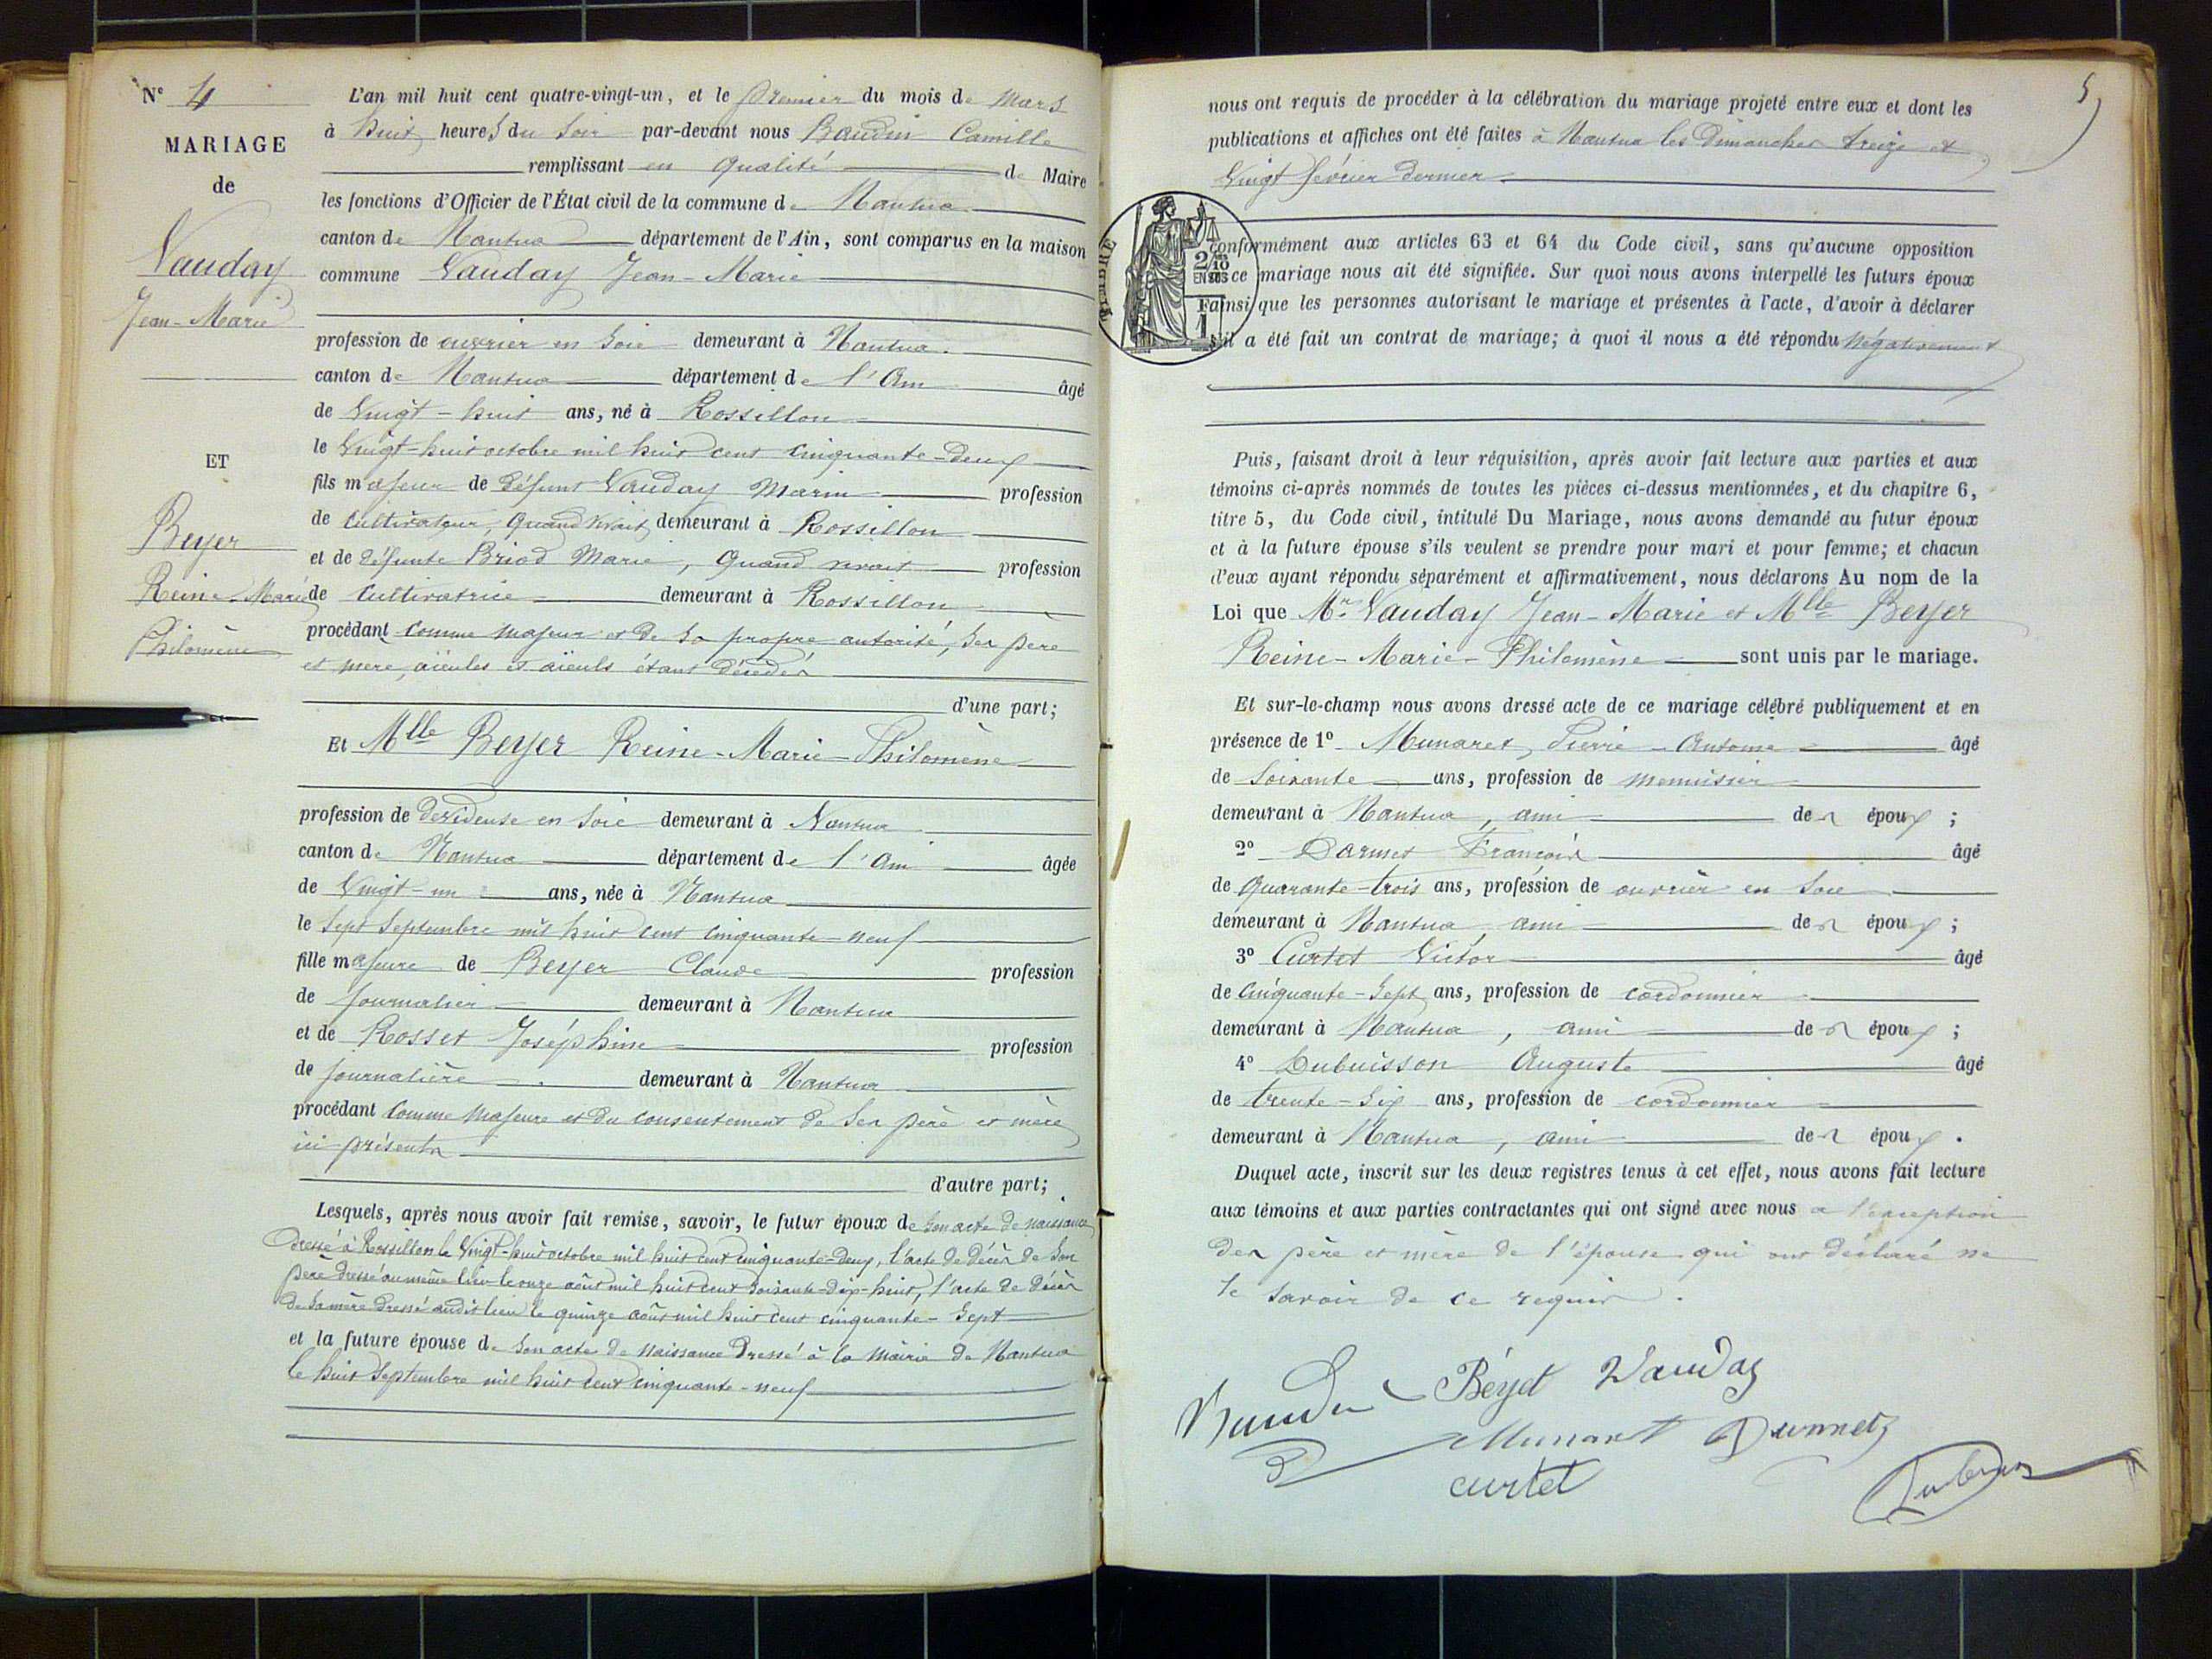 N° 4
MARIAGE
de
Vauday
Jean-Marie
ET
Beyer
Reine-Marie
Philomène
L'an mil huit cent quatre-vingt-un, et le premier du mois de Mars
à huit heures du soir par-devant nous Baudin Camille
remplissant en qualité de Maire
les fonctions d'Officier de l'État civil de la commune de Nantua
canton de Nantua département de l'Ain, sont comparus en la maison
commune Vauday Jean-Marie
profession de ouvrier en soie demeurant à Nantua.
canton de Nantua département de l'Ain âgé
de Vingt-huit ans, né à Rossillon
le Vingt-huit octobre mil huit cent cinquante-deux
fils majeur de défunt Vauday Marin profession
de cultivateur, quand vivait demeurant à Rossillon
et de défunte Briod Marie, quand vivait profession
de cultivatrice demeurant à Rossillon
procédant comme majeur et de sa propre autorité, ses père
et mère, aïeules et aïeuls étant décédés
d'une part;
Et Mlle Beyer Reine-Marie-Philomène
profession de dévideuse en soie demeurant à Nantua
canton de Nantua département de l'Ain âgée
de Vingt-un ans, née à Nantua
le sept septembre mil huit cent cinquante-neuf
fille majeure de Beyer Claude profession
de journalier demeurant à Nantua
et de Rosset Joséphine profession
de journalière demeurant à Nantua
procédant comme majeure et du consentement de ses père et mère
ici présents
d'autre part;
Lesquels, après nous avoir fait remise, savoir, le futur époux de son acte de naissance
dressé à Rossillon le Vingt-huit octobre mil huit cent cinquante-deux, l'acte de décès de son
père dressé au même lieu le onze août mil huit cent soixante-dix-huit, l'acte de décès
de sa mère dressé audit lieu le quinze août mil huit cent cinquante-sept
et la future épouse de son acte de naissance dressé à la mairie de Nantua
le huit septembre mil huit cent cinquante-neuf
5
nous ont requis de procéder à la célébration du mariage projeté entre eux et dont les
publications et affiches ont été faites à Nantua les Dimanches treize et
Vingt février dernier
TIMBRE
2/10
EN SUS
1
F
conformément aux articles 63 et 64 du Code civil, sans qu'aucune opposition
ce mariage nous ait été signifiée. Sur quoi nous avons interpellé les futurs époux
ainsi que les personnes autorisant le mariage et présentes à l'acte, d'avoir à déclarer
s'il a été fait un contrat de mariage; à quoi il nous a été répondu négativement
Puis, faisant droit à leur réquisition, après avoir fait lecture aux parties et aux
témoins ci-après nommés de toutes les pièces ci-dessus mentionnées, et du chapitre 6,
titre 5, du Code civil, intitulé Du Mariage, nous avons demandé au futur époux
et à la future épouse s'ils veulent se prendre pour mari et pour femme; et chacun
d'eux ayant répondu séparément et affirmativement, nous déclarons Au nom de la
Loi que Mr. Vauday Jean-Marie et Mlle Beyer
Reine-Marie-Philomène sont unis par le mariage.
Et sur-le-champ nous avons dressé acte de ce mariage célébré publiquement et en
présence de 1° Munaret Pierre-Antoine âgé
de soixante ans, profession de menuisier
demeurant à Nantua, ami des époux ;
2° Darmet François âgé
de quarante-trois ans, profession de ouvrier en soie
demeurant à Nantua, ami des époux ;
3° Curtet Victor âgé
de cinquante-sept ans, profession de cordonnier
demeurant à Nantua, ami des époux ;
4° Dubuisson Auguste âgé
de trente-six ans, profession de cordonnier
demeurant à Nantua, ami des époux .
Duquel acte, inscrit sur les deux registres tenus à cet effet, nous avons fait lecture
aux témoins et aux parties contractantes qui ont signé avec nous à l'exception
des père et mère de l'épouse qui ont déclaré ne
le savoir de ce requis.
Baudin Béyet Vauday
Munaret Darmet
curtet